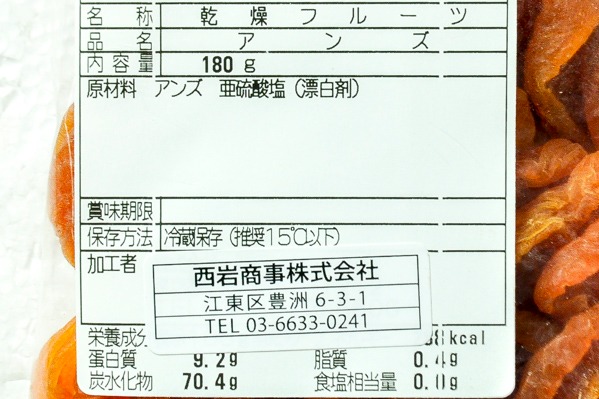 名称 乾燥フルーツ
品名 アンズ
内容量 180g
原材料 アンズ 亜硫酸塩(漂白剤)
賞味期限
保存方法 冷蔵保存(推奨15℃以下)
加工者
西岩商事株式会社
江東区豊洲 6-3-1
TEL 03-6633-0241
栄養成分 8kcal
蛋白質 9.2g 脂質 0.4g
炭水化物 70.4g 食塩相当量 0.0g